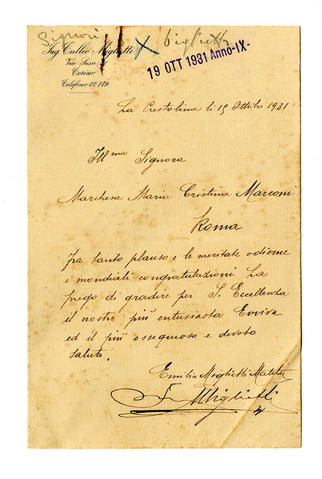 Signori
biglietto
Ing. Tullio Miglietti
Via Susa
Torino
Telefono 42.779
19 OTT 1931 Anno-IX-
La Crestolina li 15 Ottobre 1931
Ill.ma Signora
Marchesa Maria Cristina Marconi
Roma
Fra tanto plauso e le meritate odierne
e mondiali congratulazioni La
prego di gradire per S. Eccellenza
il nostro più entusiasta Evviva
ed il più ossequioso e devoto
saluto.
Emilia Miglietti
T. Miglietti